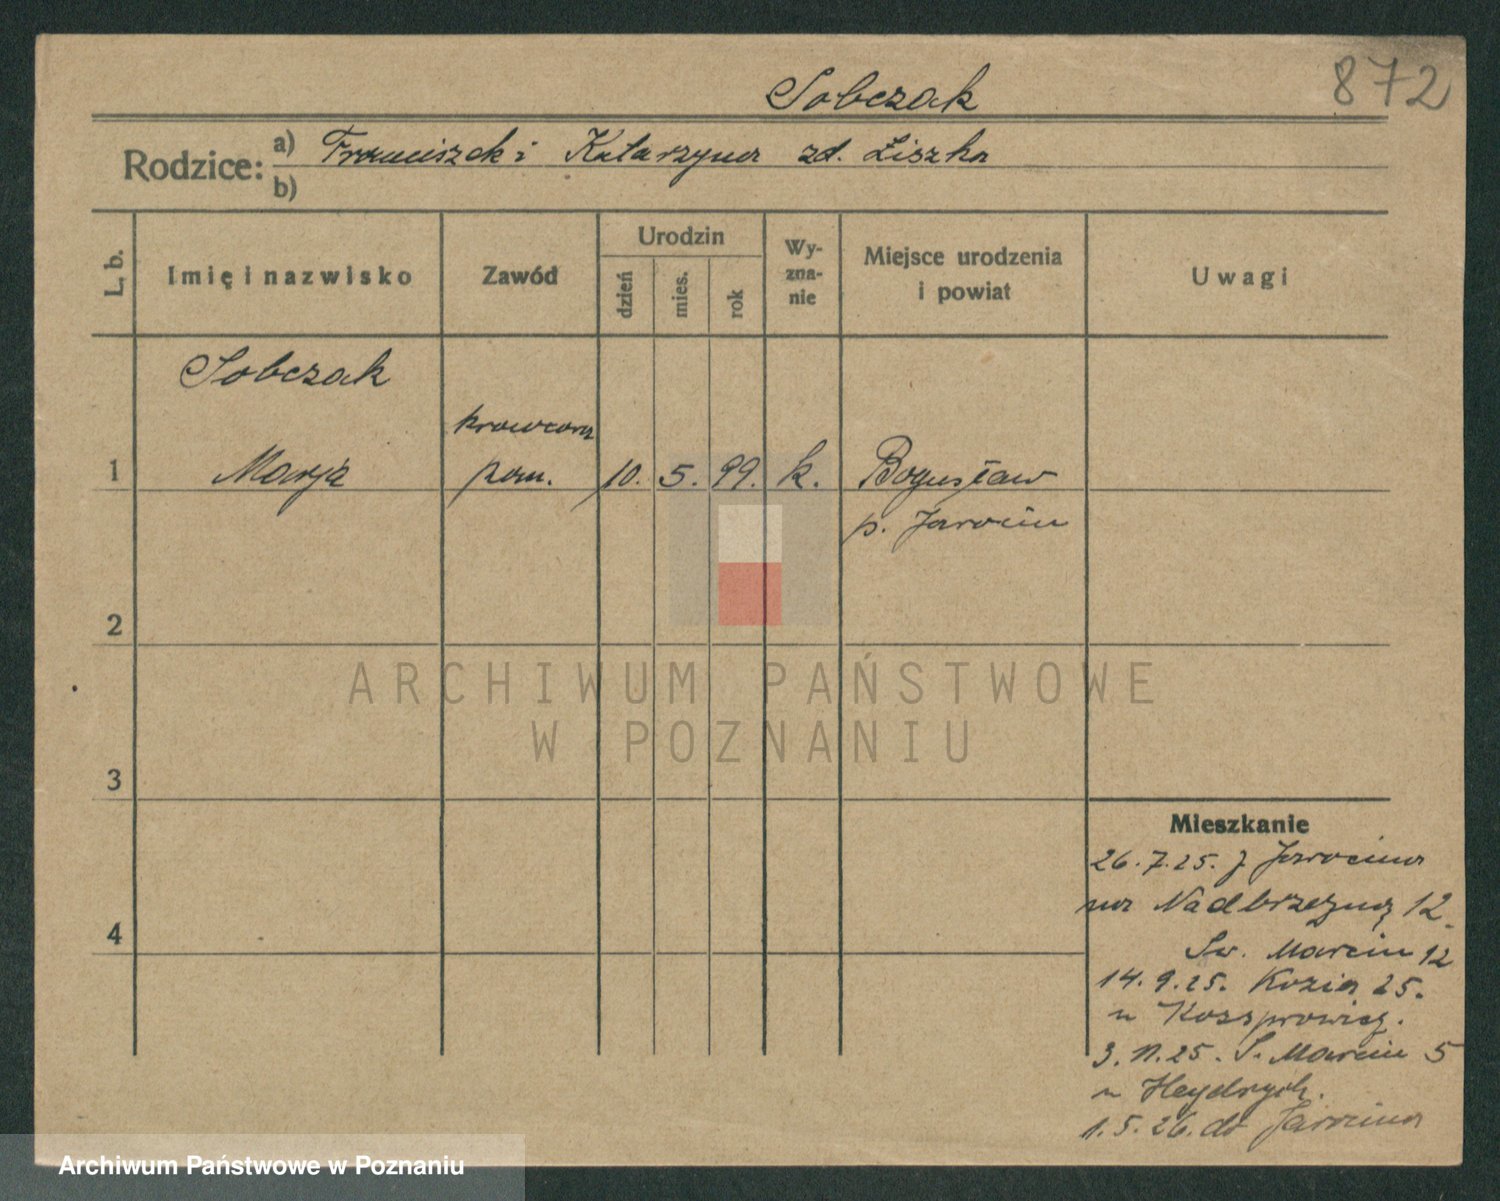 872
Sobczak
Rodzice: a) Franciszek i Katarzyna zd. Liszka
b)
L. b.
Imię i nazwisko
Zawód
Urodzin
dzień
mies.
rok
Wy-
zna-
nie
Miejsce urodzenia
i powiat
Uwagi
Sobczak
krawcowa
1 Marja pom. 10. 5. 99. k. Bogusław
p. Jarocin
2
ARCHIWUM PAŃSTWOWE
W POZNANIU
3
Mieszkanie
26.7.25. z Jarocina
na Nadbrzeżną 12.
Św. Marcin 12
4
14.9.25. Kozia 25.
u
3.11.25. Ś. Marcin 5
u Heydrych.
1.5.26. do Jarocina
Archiwum Państwowe w Poznaniu